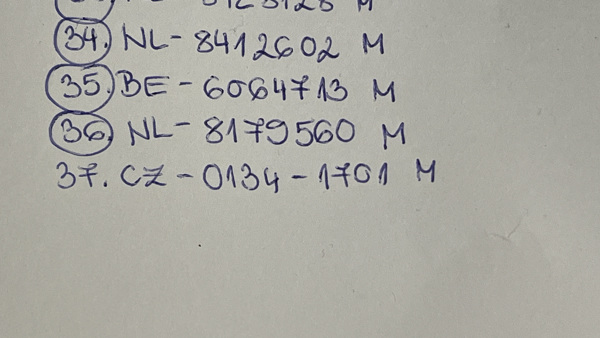 34. NL- 8412602 M
35. BE - 6064713 M
36. NL- 8179560 M
37. CZ - 0134 - 1701 M